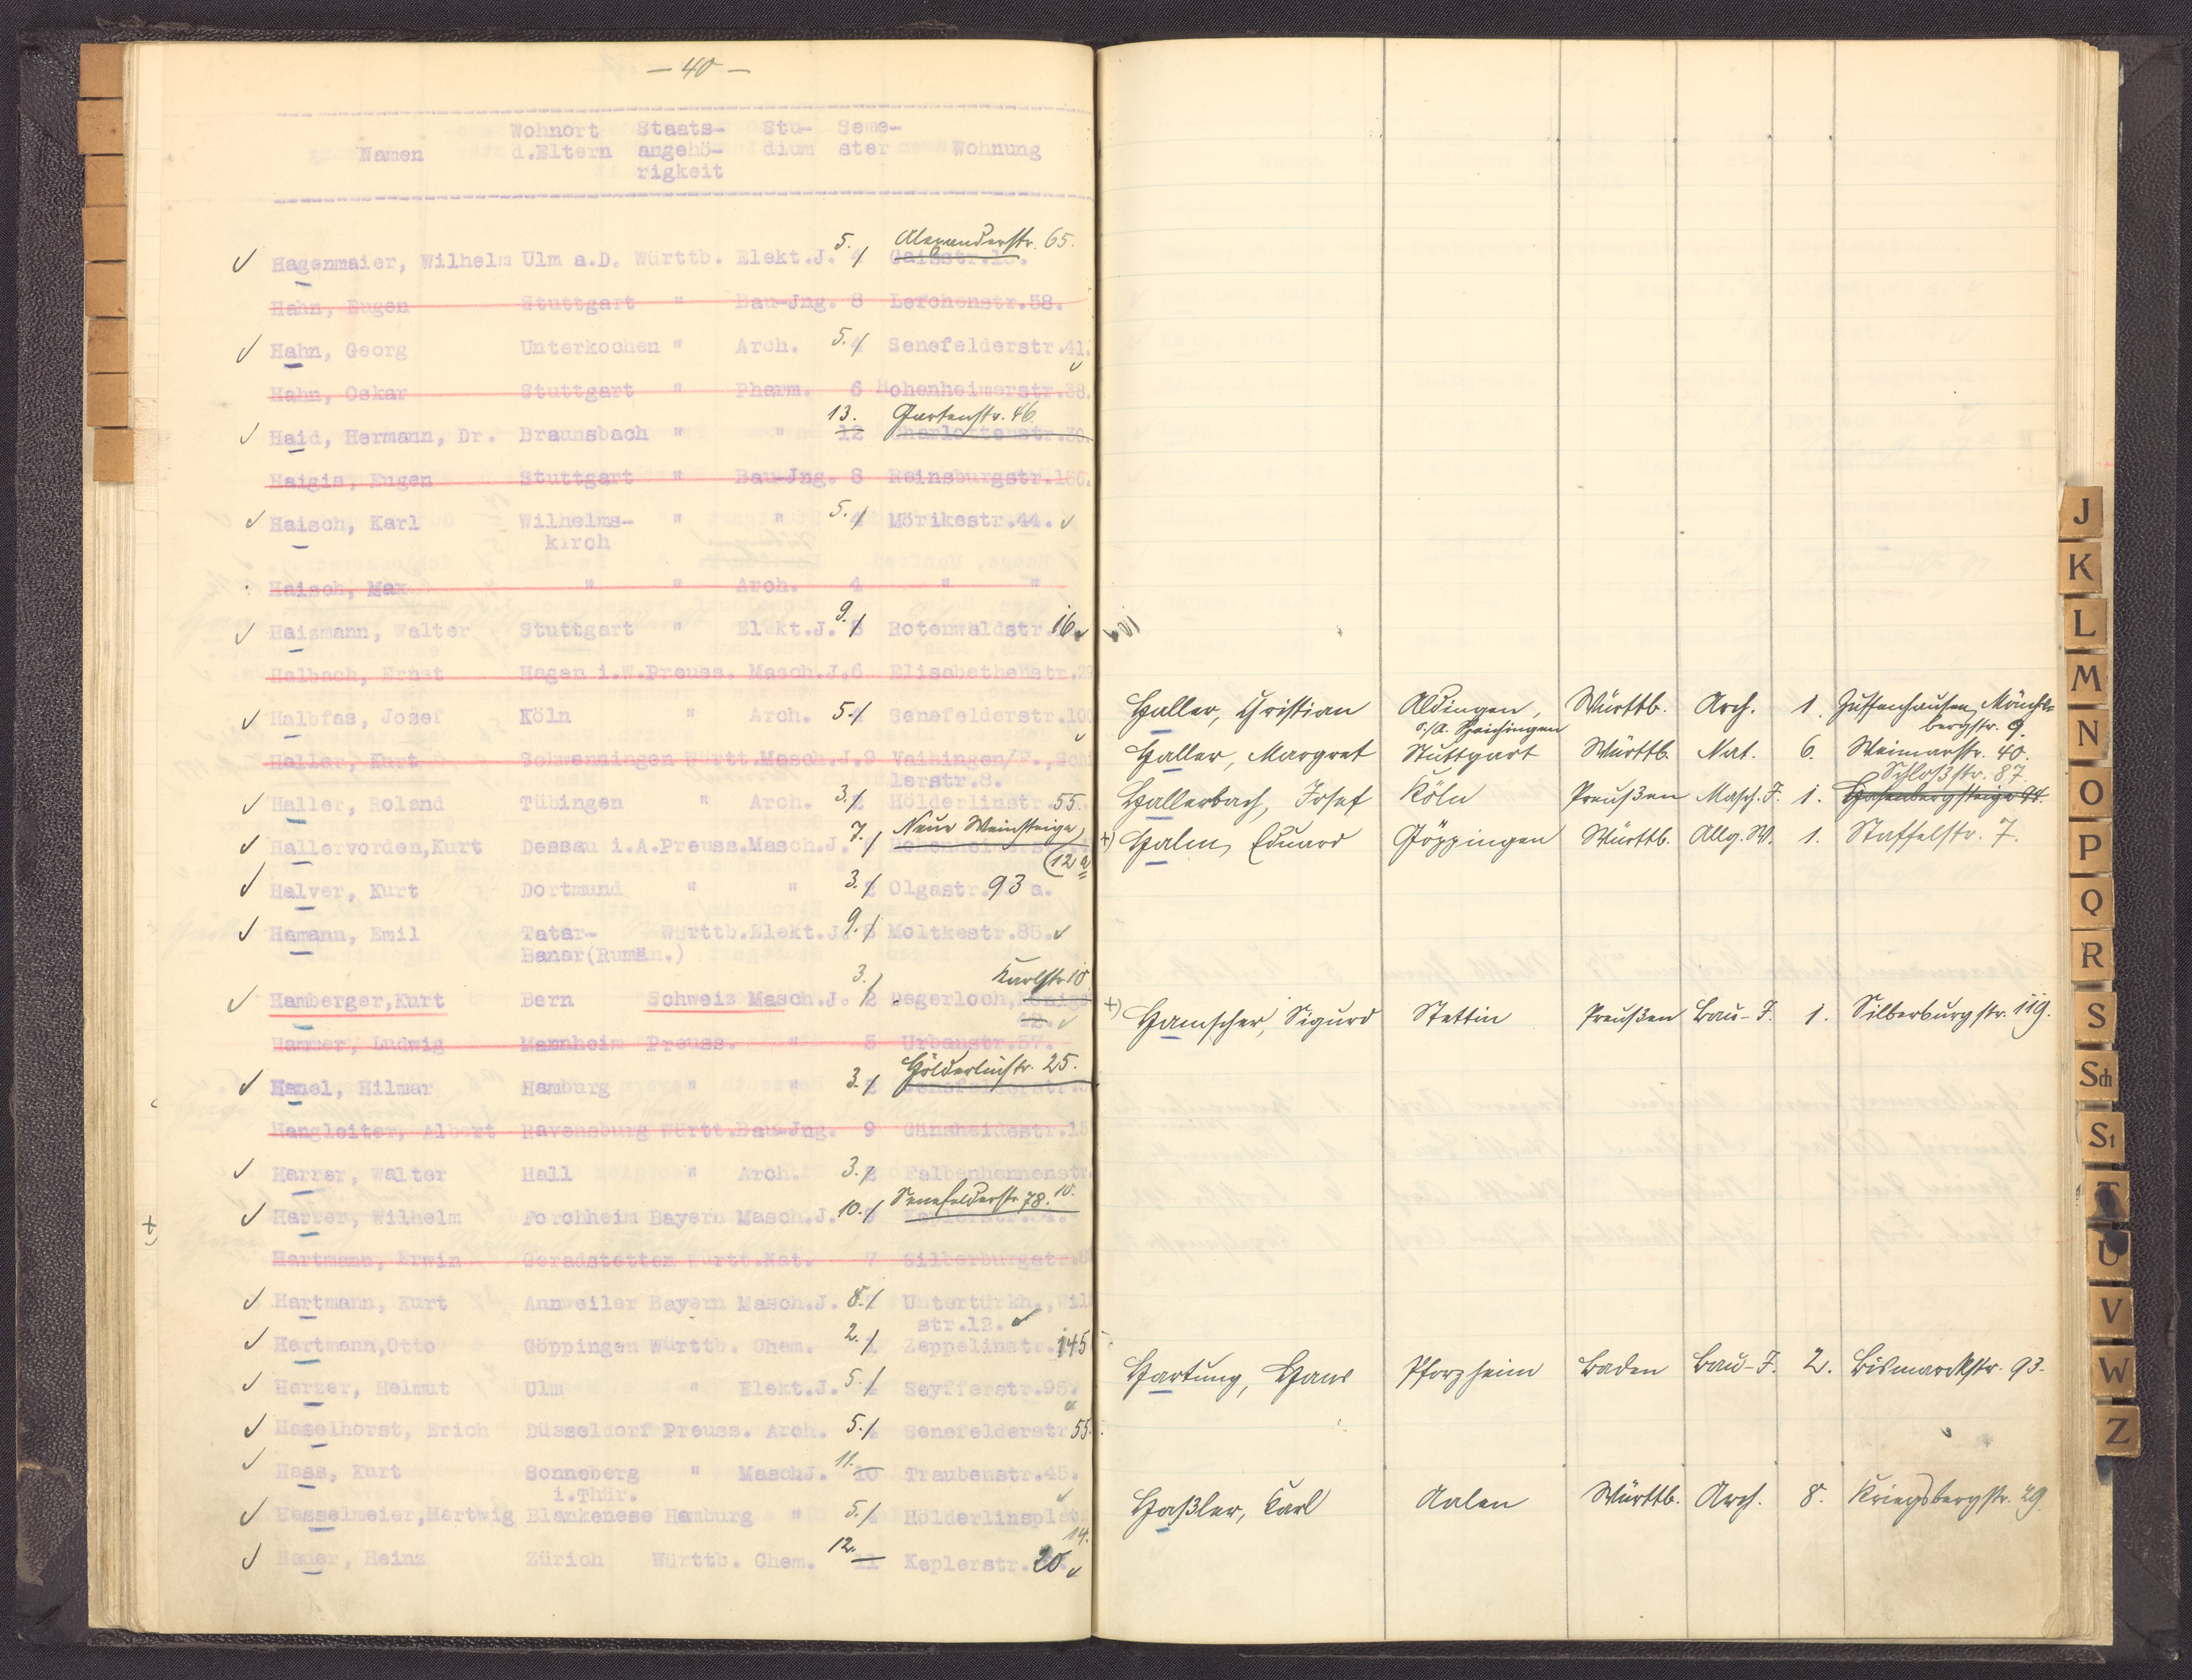 — 40 —
Wohnort Staats- Stu- Seme-
Namen d.Eltern angehö- dium ster Wohnung
rigkeit
5. Alexanderstr. 65.
Hagenmaier, Wilhelm Ulm a.D. Württb. Elekt.J. 4
Hahn, Eugen Stuttgart " Bau-Jng. 8 Lerchenstr.58.
Hahn, Georg Unterkochen " Arch. 5. 4 Senefelderstr.41.
Hahn, Oskar Stuttgart " Pharm. 6 Hohenheimerstr.38.
13. Gartenstr. 46.
Haid, Hermann, Dr. Braunsbach " " 12 Charlottenstr.
Haigis, Eugen Stuttgart " Bau-Jng. 8 Reinsburgstr.186.
Haisch, Karl Wilhelms- " " 5. 4 Mörikestr.44.
kirch
Haisch, Max " " Arch. 4 " "
Haizmann, Walter Stuttgart " Elekt.J. 9. 8 Rotenwaldstr. 16
Halbach, Ernst Hagen i.W. Preuss. Masch.J.6 Elisabethenstr.29
Halbfas, Josef Köln " Arch. 5. 4 Senefelderstr.100
Haller, Kurt Schwenningen Württ.Masch.J.9 Vaihingen/F.,Schil
lerstr.8.
Haller, Roland Tübingen " Arch. 3. 2 Hölderlinstr. 55.
7. Neue Weinsteige
Hallervorden,Kurt Dessau i.A.Preuss.Masch.J.
12a
Halver, Kurt Dortmund " " 3. 2 Olgastr. 93 a.
Hamann, Emil Tatar- Württb.Elekt.J. 9. 8 Moltkestr.85.
Banar(Rumän.)
3. Karlstr 10
Hamberger,Kurt Bern Schweiz Masch.J. 2 Degerloch,Königs
12.
Hammer, Ludwig Mannheim Preuss. " 5 Urbanstr.57.
Hölderlinstr. 25.
Hanel, Hilmar Hamburg " " 3. 2 Senefelderstr.
Hangleiter, Albert Ravensburg Württ.Bau-Jng. 9 Gänsheidestr.15
Harrer, Walter Hall " Arch. 3. 2 Falbenhennenstr.
10.
Senefelderstr 78.
Harrer, Wilhelm Forchheim Bayern Masch.J. 10. 9 Keplerstr.
Hartmann, Erwin Geradstetten Württ.Nat. 7 Silberburgstr.
Hartmann, Kurt Annweiler Bayern Masch.J. 8. Untertürkh.,Wil
str.12.
Hartmann,Otto Göppingen Württb. Chem. 2. 1 Zeppelinstr. 145
Harzer, Helmut Ulm " Elekt.J. 5. 4 Seyfferstr.95.
Haselhorst, Erich Düsseldorf Preuss. Arch. 5. 4 Senefelderstr 55.
Hass, Kurt Sonneberg " MaschJ. 11. 10 Traubenstr.45.
i.Thür.
Hasselmeier,Hartwig Blankenese Hamburg " 5. 4 Hölderlinsplatz
14.
Heinz Zürich Württb. Chem. 12. 11 Keplerstr. 20
Haller, Christian Aldingen, Württb. Arch. 1. Zuffenhausen, Mönchs-
O./A. Spaichingen bergstr. 9.
Haller, Margret Stuttgart Württb. Nat. 6. Weimarstr. 40.
Schloßstr. 87.
Hallerbach, Josef Köln Preußen Masch.J. 1. Hasenbergsteige 94.
+) Halm, Eduard Göppingen Württb. Allg. W. 1. Staffelstr. 7.
+) Hamscher, Sigurd Stettin Preußen Bau-J. 1. Silberburgstr. 119.
Hartung, Hans Pforzheim Baden Bau-J. 2. Bismarckstr. 93.
Haßler, Carl Aalen Württb. Arch. 8. Kriegsbergstr. 29.
J
K
L
M
N
O
P
Q
R
S
Sch
St
T
U
V
W
Z